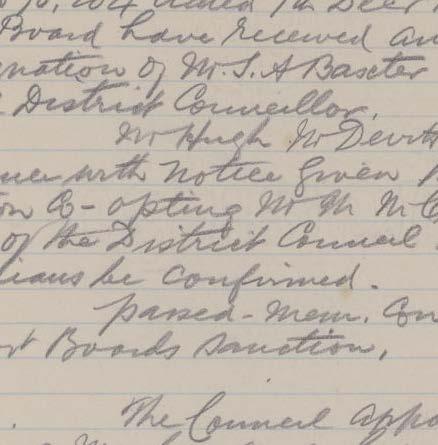 Board have received an
nation of Mr. S. A Baxter
District Councillor.
Mr Hugh McDevitt
with Notice Given
Co-opting Mr M McC
of the District Council
ians be confirmed.
passed - Mem. Con
Boards Sanction.
The Council appo